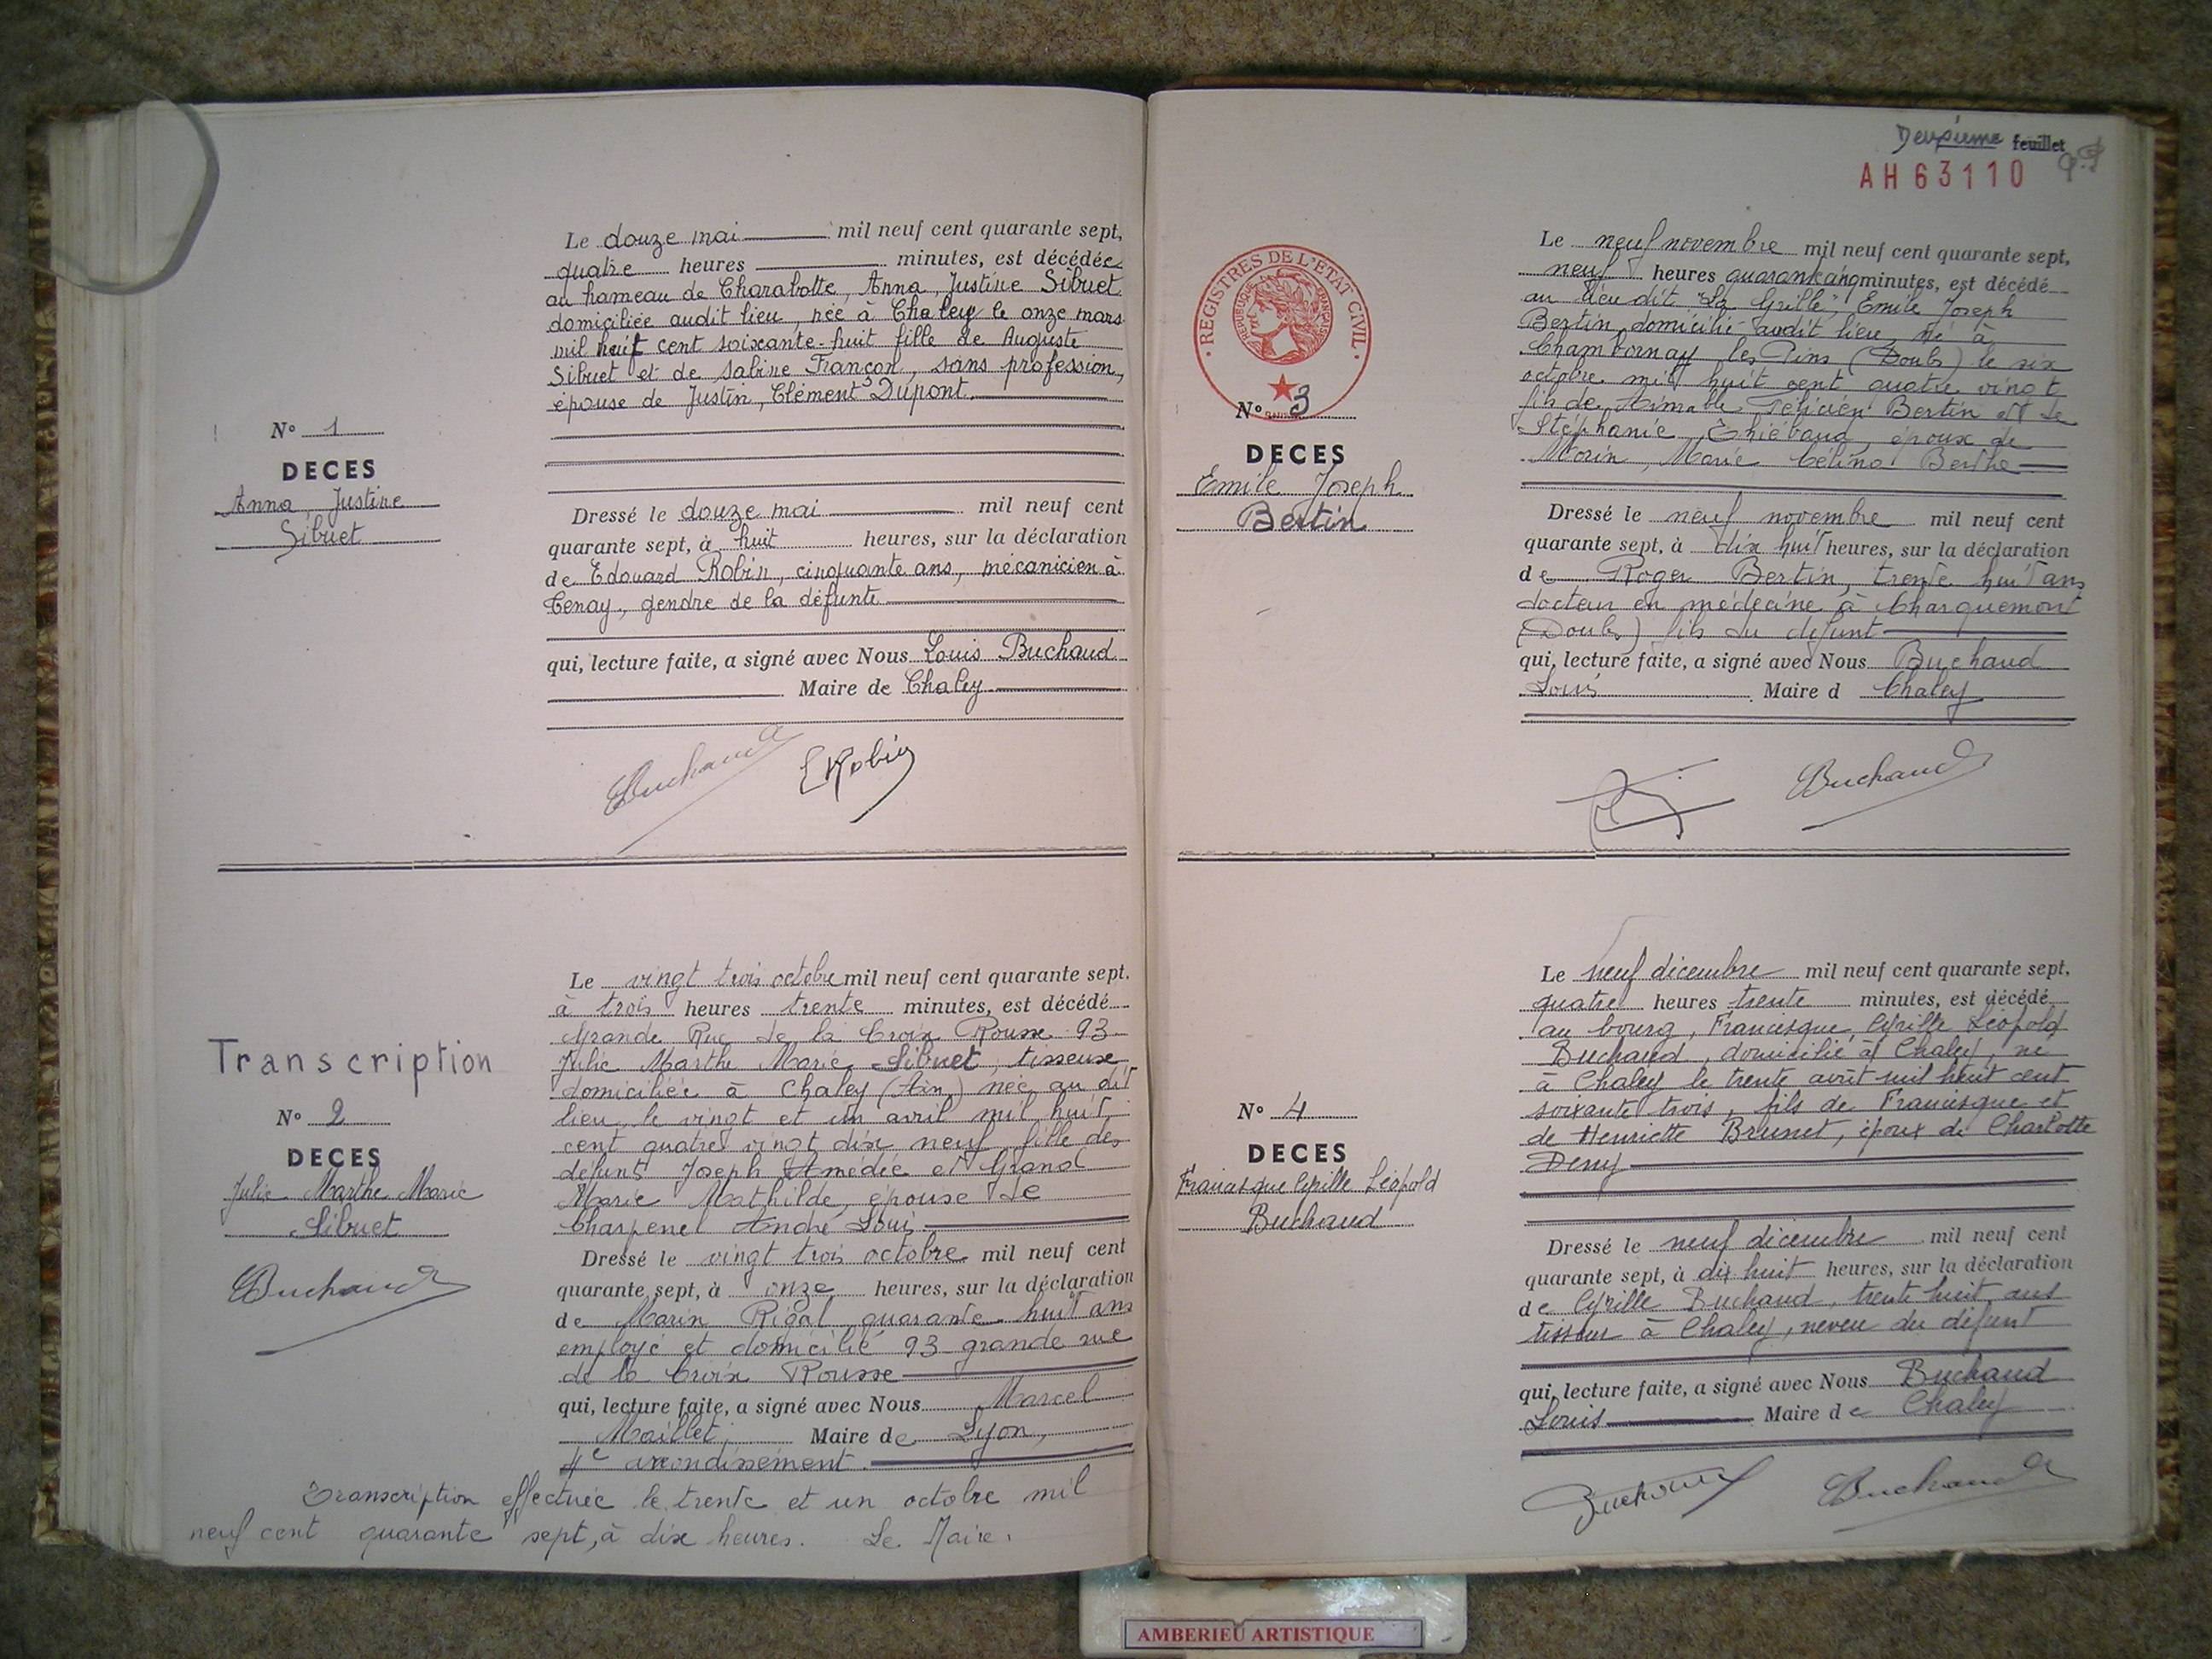 Le douze mai mil neuf cent quarante sept,
quatre heures minutes, est décédée
au hameau de Charabotte, Anna, Justine Sibuet
domiciliée audit lieu, née à Chaley le onze mars
mil huit cent soixante-huit fille de Auguste
Sibuet et de Sabine Françon, sans profession,
épouse de Justin, Clément Dupont.
N° 1
DECES
Anna Justine
Sibuet
Dressé le douze mai mil neuf cent
quarante sept, à huit heures, sur la déclaration
de Edouard Robin, cinquante ans, mécanicien à
Tenay, gendre de la défunte
qui, lecture faite, a signé avec Nous Louis Buchaud
Maire de Chaley
Buchaud ERobin
Le vingt trois octobre mil neuf cent quarante sept.
à trois heures trente minutes, est décédé
Grande Rue de la Croix Rousse 93
Julie Marthe Marie Sibuet, tisseuse
domiciliée à Chaley (Ain) née au dit
lieu, le vingt et un avril mil huit
cent quatre vingt dix neuf, fille des
défunts Joseph Amédée et Grand
Marie Mathilde, épouse de
Charpenel André Louis
Transcription
N° 2
DECES
Julie Marthe Marie
Sibuet
Buchaud
Dressé le vingt trois octobre mil neuf cent
quarante sept, à onze heures, sur la déclaration
de Marin Rigal quarante huit ans
employé et domicilié 93 grande rue
de la Croix Rousse
qui, lecture faite, a signé avec Nous Marcel
Maillet, Maire de Lyon,
4e arrondissement.
Transcription effectuée le trente et un octobre mil
neuf cent quarante sept, à dix heures. Le Maire.
Deuxième feuillet
AH 63110
REGISTRES DE L'ETAT CIVIL
REPUBLIQUE FRANÇAISE
Le neuf novembre mil neuf cent quarante sept,
neuf heures quarante cinq minutes, est décédé
au lieu dit "La Grille", Emile Joseph
Bertin domicilié audit lieu, né à
Chambornay les Pins (Doubs) le six
octobre mil huit cent quatre vingt
fils de Aimable Félicien Bertin et de
Stéphanie Thiébaud, époux de
Morin, Marie Célina Berthe
N° 3
DECES
Emile Joseph
Bertin
Dressé le neuf novembre mil neuf cent
quarante sept, à dix huit heures, sur la déclaration
de Roger Bertin, trente huit ans
docteur en médecine à Charquemont
(Doubs) fils du défunt
qui, lecture faite, a signé avec Nous Buchaud
Louis Maire d Chaley
Buchaud
Le neuf décembre mil neuf cent quarante sept,
quatre heures trente minutes, est décédé
au bourg, Francisque, Cyrille Léopold
Buchaud, domicilié à Chaley, né
à Chaley le trente août mil huit cent
soixante trois, fils de Francisque et
de Henriette Brunet, époux de Charlotte
Deny
N° 4
DECES
Francisque Cyrille Léopold
Buchaud
Dressé le neuf décembre mil neuf cent
quarante sept, à dix huit heures, sur la déclaration
de Cyrille Buchaud, trente huit ans
tisseur à Chaley, neveu du défunt
qui, lecture faite, a signé avec Nous Buchaud
Louis Maire de Chaley
Buchaud Buchaud
AMBERIEU ARTISTIQUE